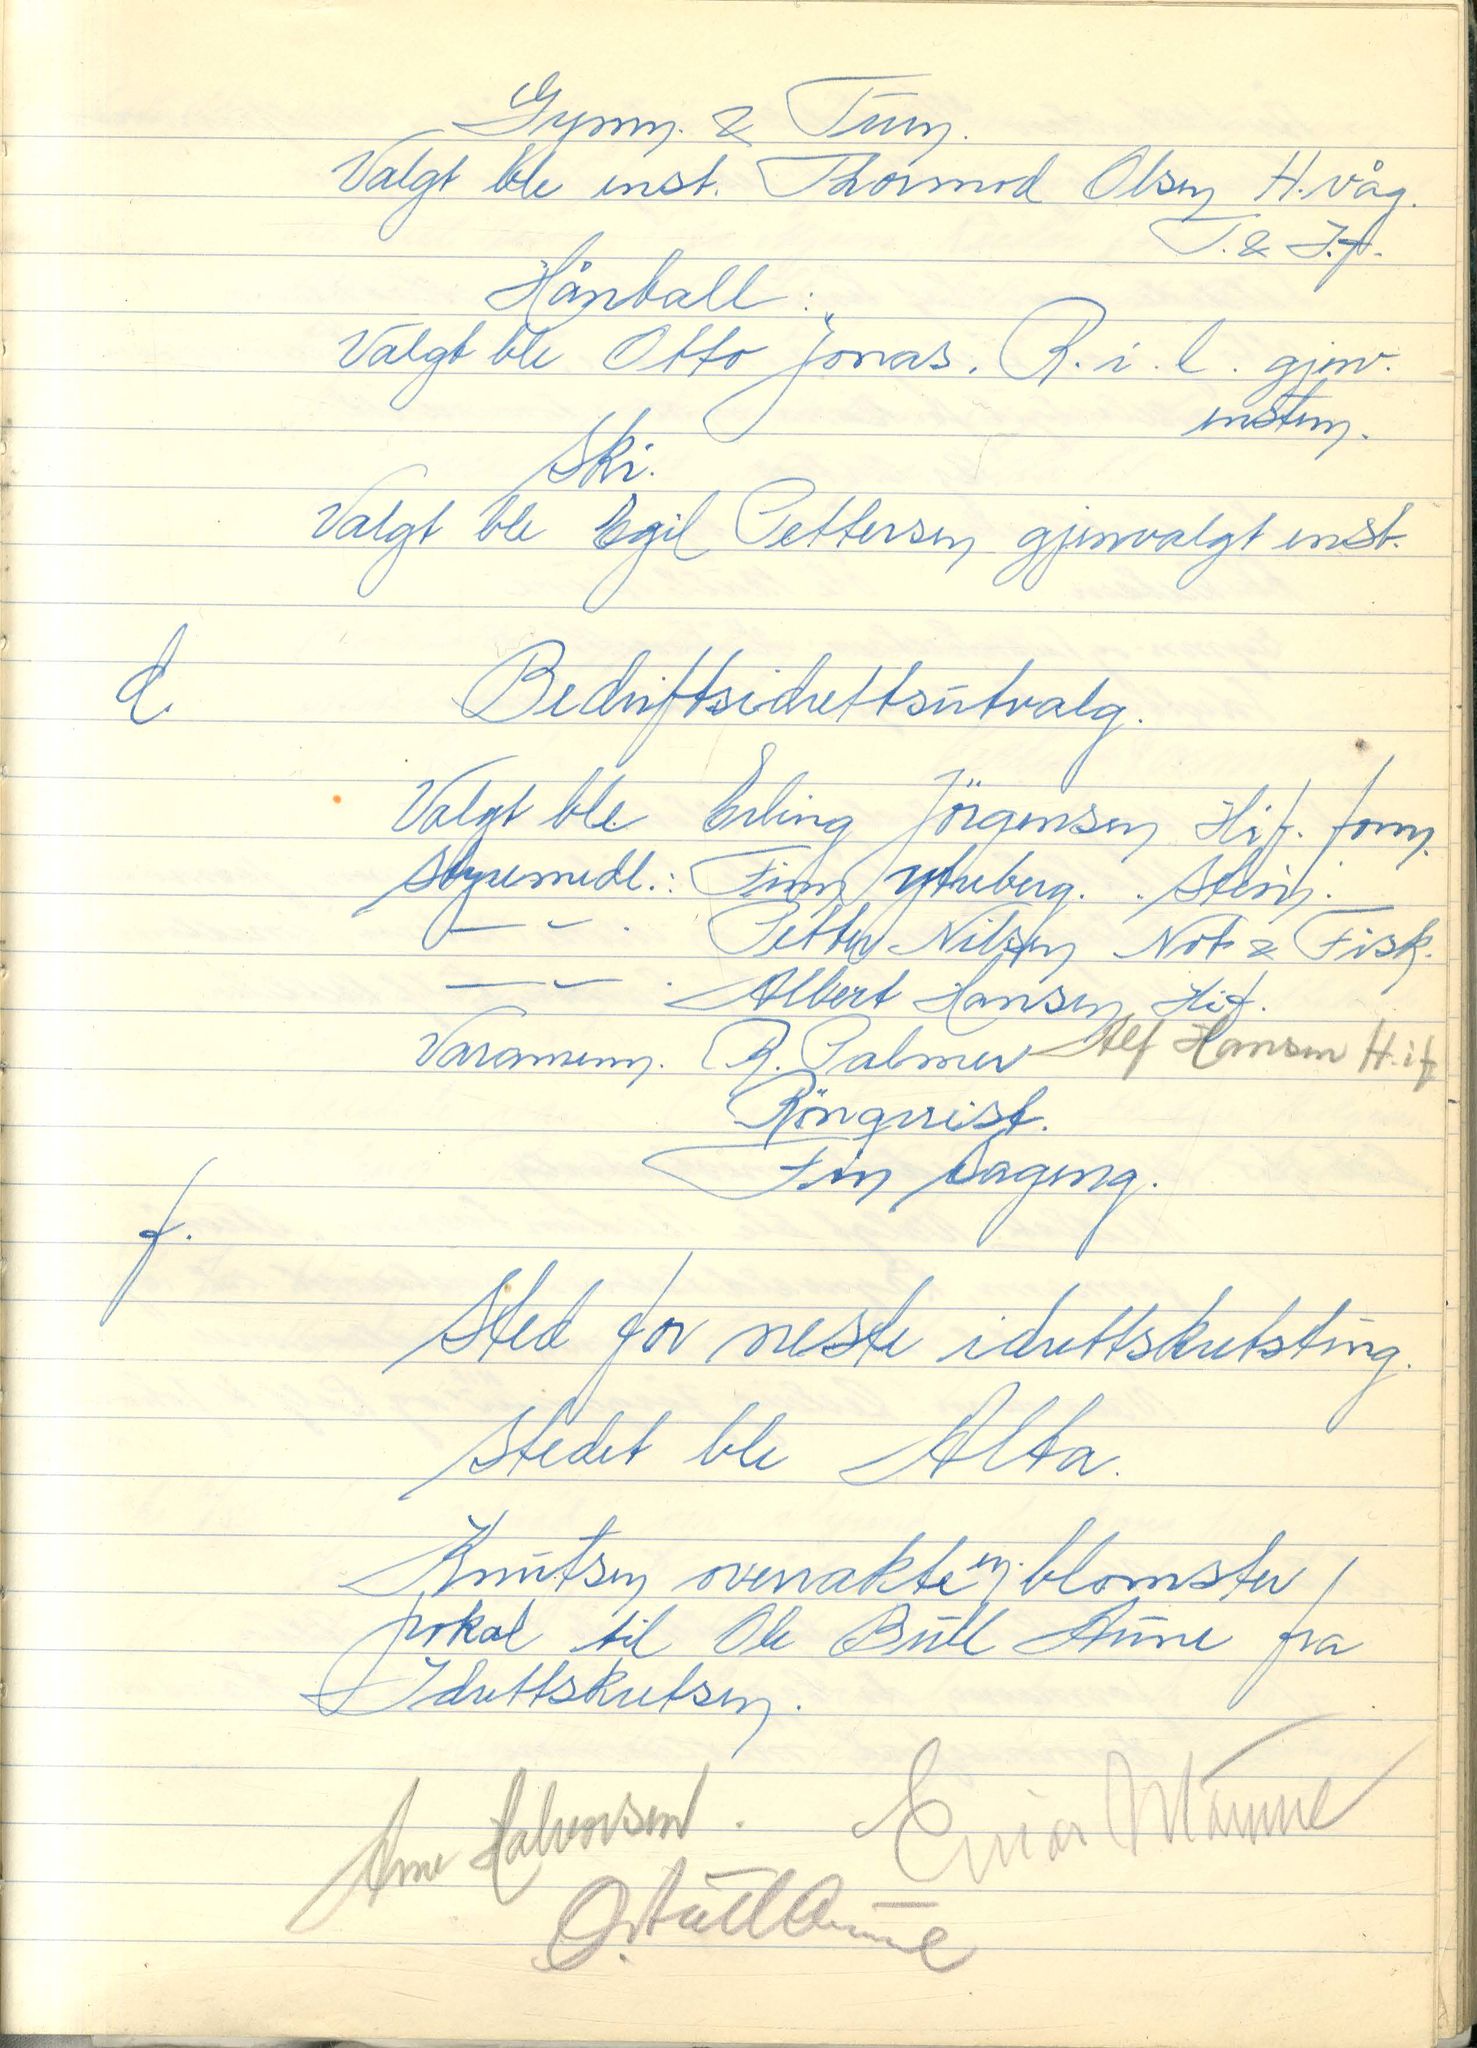 Gymn. & Turn.
Valgt ble enst. Thormod Olsen H.våg.
T. & I.f.
Hånball:
Valgt ble Otto Jonas. R.i.l. gjenv.
enstem.
Ski.
Valgt ble Egil Pettersen gjenvalgt enst.
d. Bedriftsidrettsutvalg.
Valgt ble Erling Jörgensen Hif. form.
Styremedl.: Finn Ytreberg. Stein.
— " — . Petter Nilsen Not & Fisk.
— " — . Albert Hansen Hif.
Varamenn. R. Palmer Alf Hansen H.if
Rönqvist.
Fin Sageng.
f.
Sted for neste idrettskretsting.
Stedet ble Alta.
Knutsen overrakte en blomster
pokal til Ole Bull Aune fra
Idrettskretsen.
Arne Halvorsen. Einar
O. Bull Aune